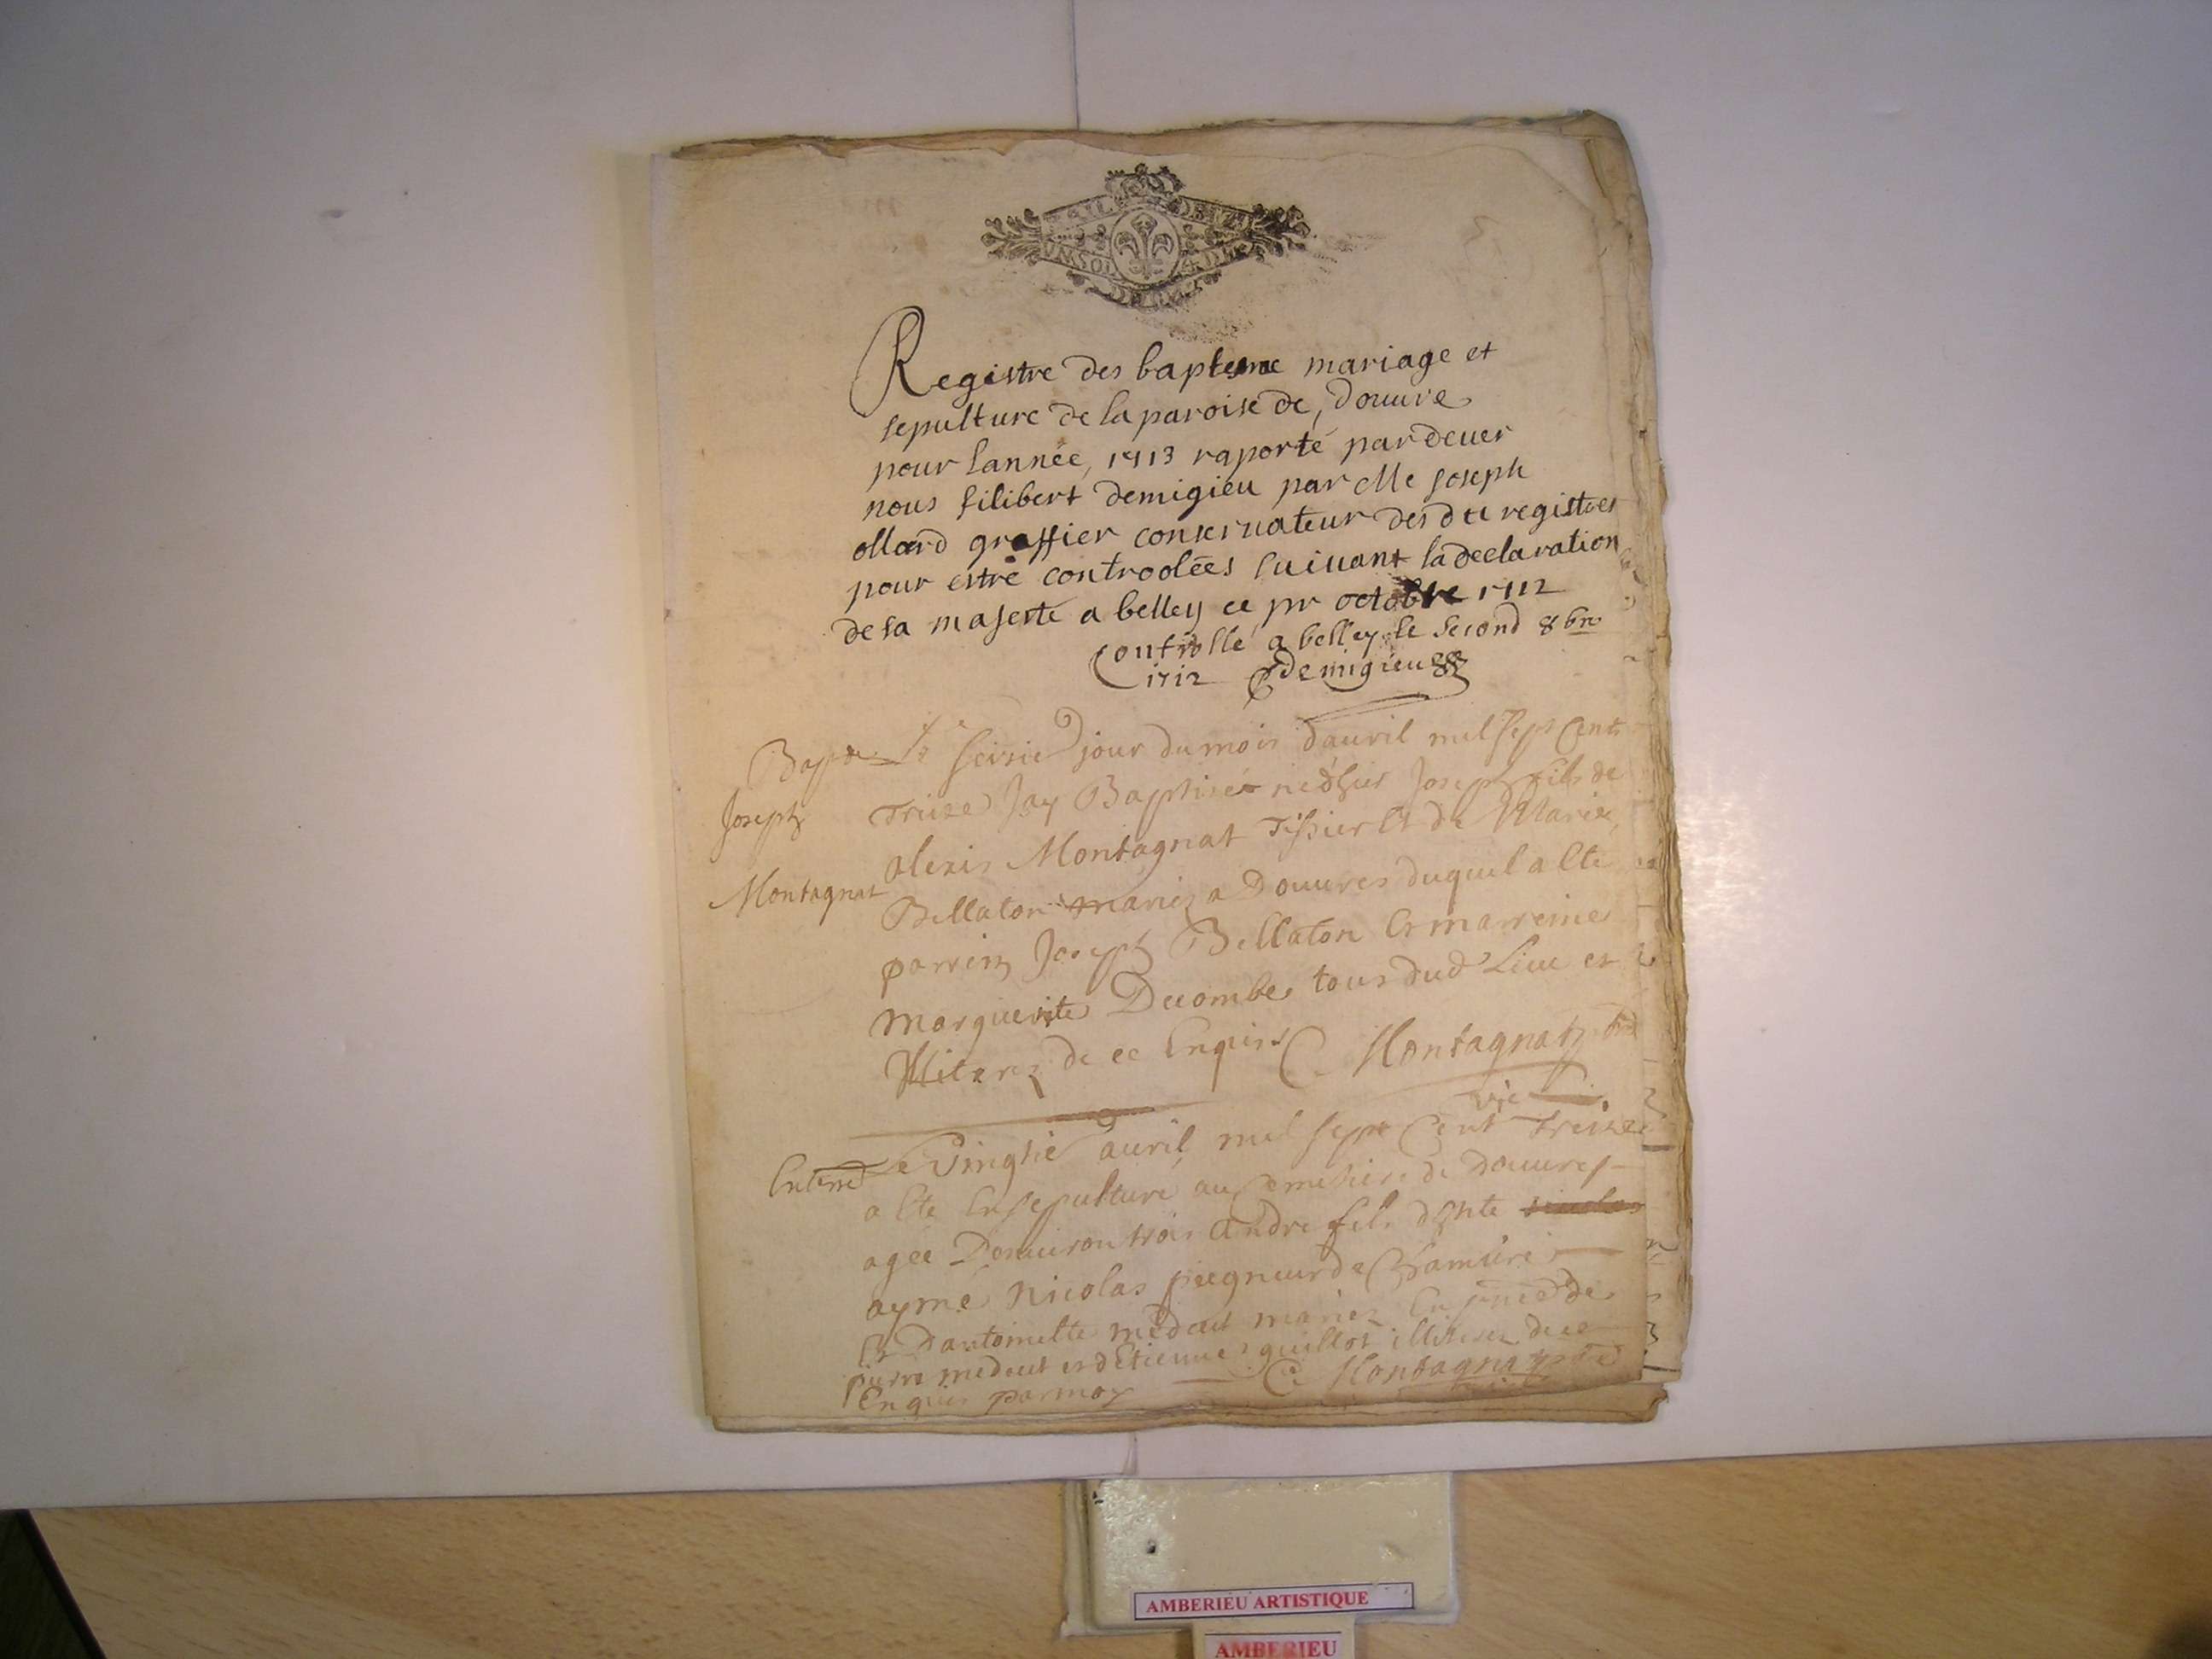 UMSOL 4 D
Registre des baptesme mariage et
sepulture de la paroise de, douure
pour lannée, 1713 raporté pardeuer
nous filibert demigieu par Me Joseph
ollard greffier conseruateur des dts registres
pour estre controolées suiuant la declaration
de sa majesté a belley ce pr octobre 1712
Controllé a belley le second 8bre
1712 demigieu
Bapt Le seizie jour du mois dauril mil sept Cent
Joseph Treize Jay Baptisé Joseph fils de
alexis Montagnat Tissier Et de Marie
Montagnat Bellaton mariez a Douures duquel a Ete
parrein Joseph Bellaton Et marreine
Marguerite Decombe tous dud Lieu et
de ce Enquis Montagnat
vic
Enterré Le Vingtie auril mil sept Cent Treize
a Ete Ensepulturé au Cemetiere de Douures
agée Denuiron trois andre fils
aymé Nicolas
Et Dantoinette medout mariez En de
pierre medout et dEtienne guillot illiterez de ce
Enquis parmoy Montagnat
AMBERIEU ARTISTIQUE
AMBERIEU